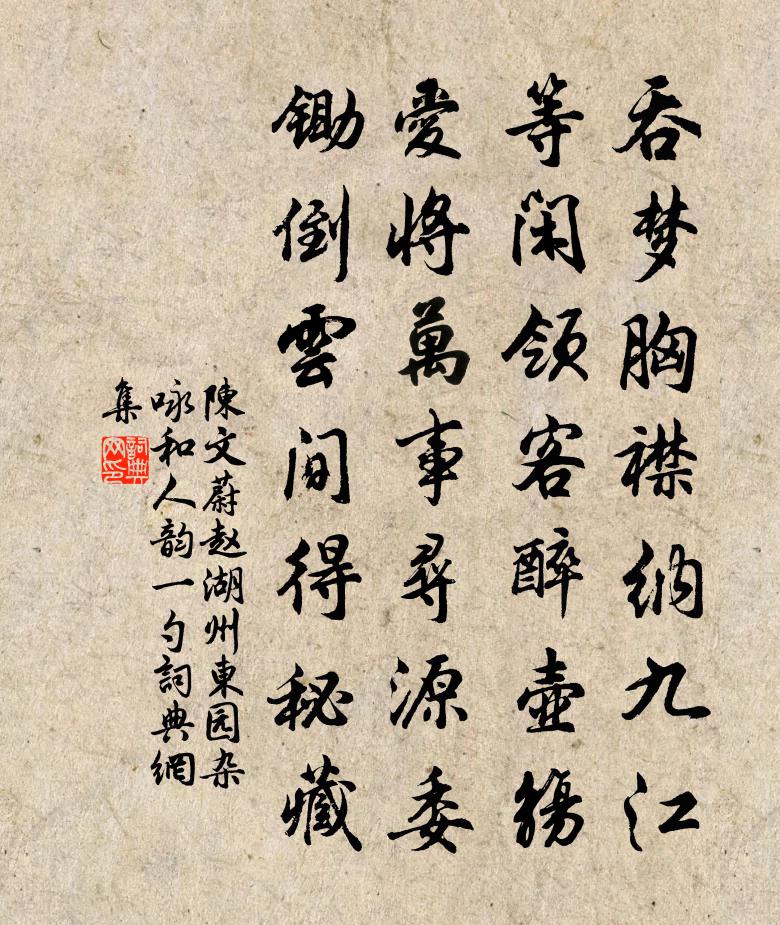 吞梦胸襟纳九江
等闲领客醉壶觞
爱将萬事尋源委
鋤倒雲间得秘藏
陳文蔚赵湖州東园杂
咏和人韵一勺詞典網
集
詞典
网印